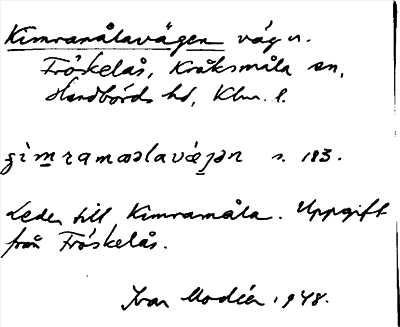 Kimramålavägen väg n.
Fröskelås, Kråksmåla sn,
Handbörds hd, Klm. l.
s. 183.
Leder till Kimramåla. Uppgift
från Fröskelås.
Ivar Modéer 1948.